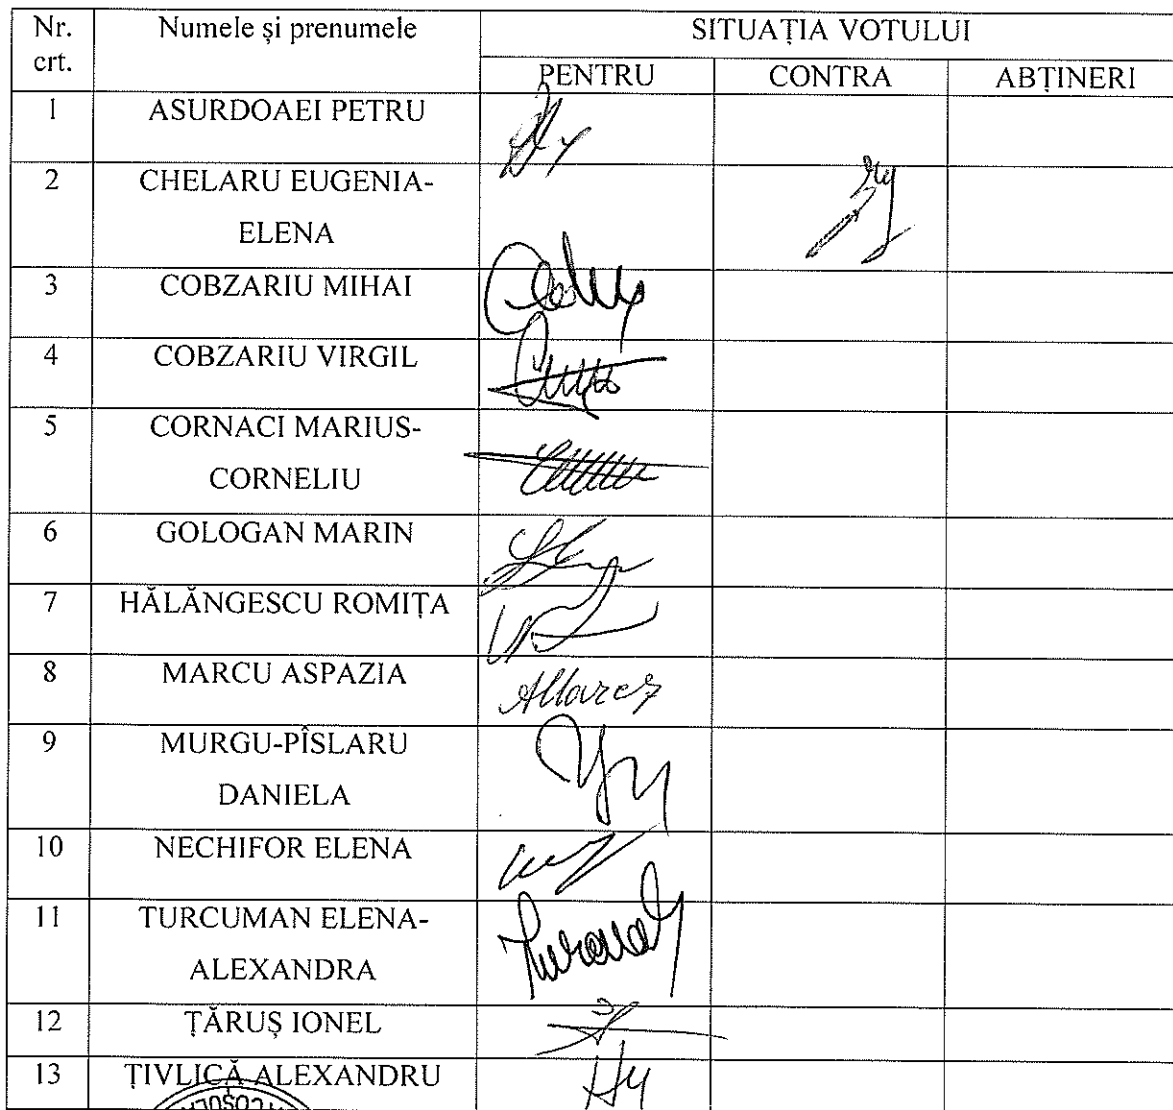 Nr. crt.
Numele și prenumele
SITUAȚIA VOTULUI
PENTRU
CONTRA
ABȚINERI
1
ASURDOAEI PETRU
2
CHELARU EUGENIA-
ELENA
3
COBZARIU MIHAI
4
COBZARIU VIRGIL
5
CORNACI MARIUS-
CORNELIU
6
GOLOGAN MARIN
7
HĂLĂNGESCU ROMIȚA
8
MARCU ASPAZIA
9
MURGU-PÎSLARU
DANIELA
10
NECHIFOR ELENA
11
TURCUMAN ELENA-
ALEXANDRA
12
ȚĂRUȘ IONEL
13
ȚIVLICĂ ALEXANDRU